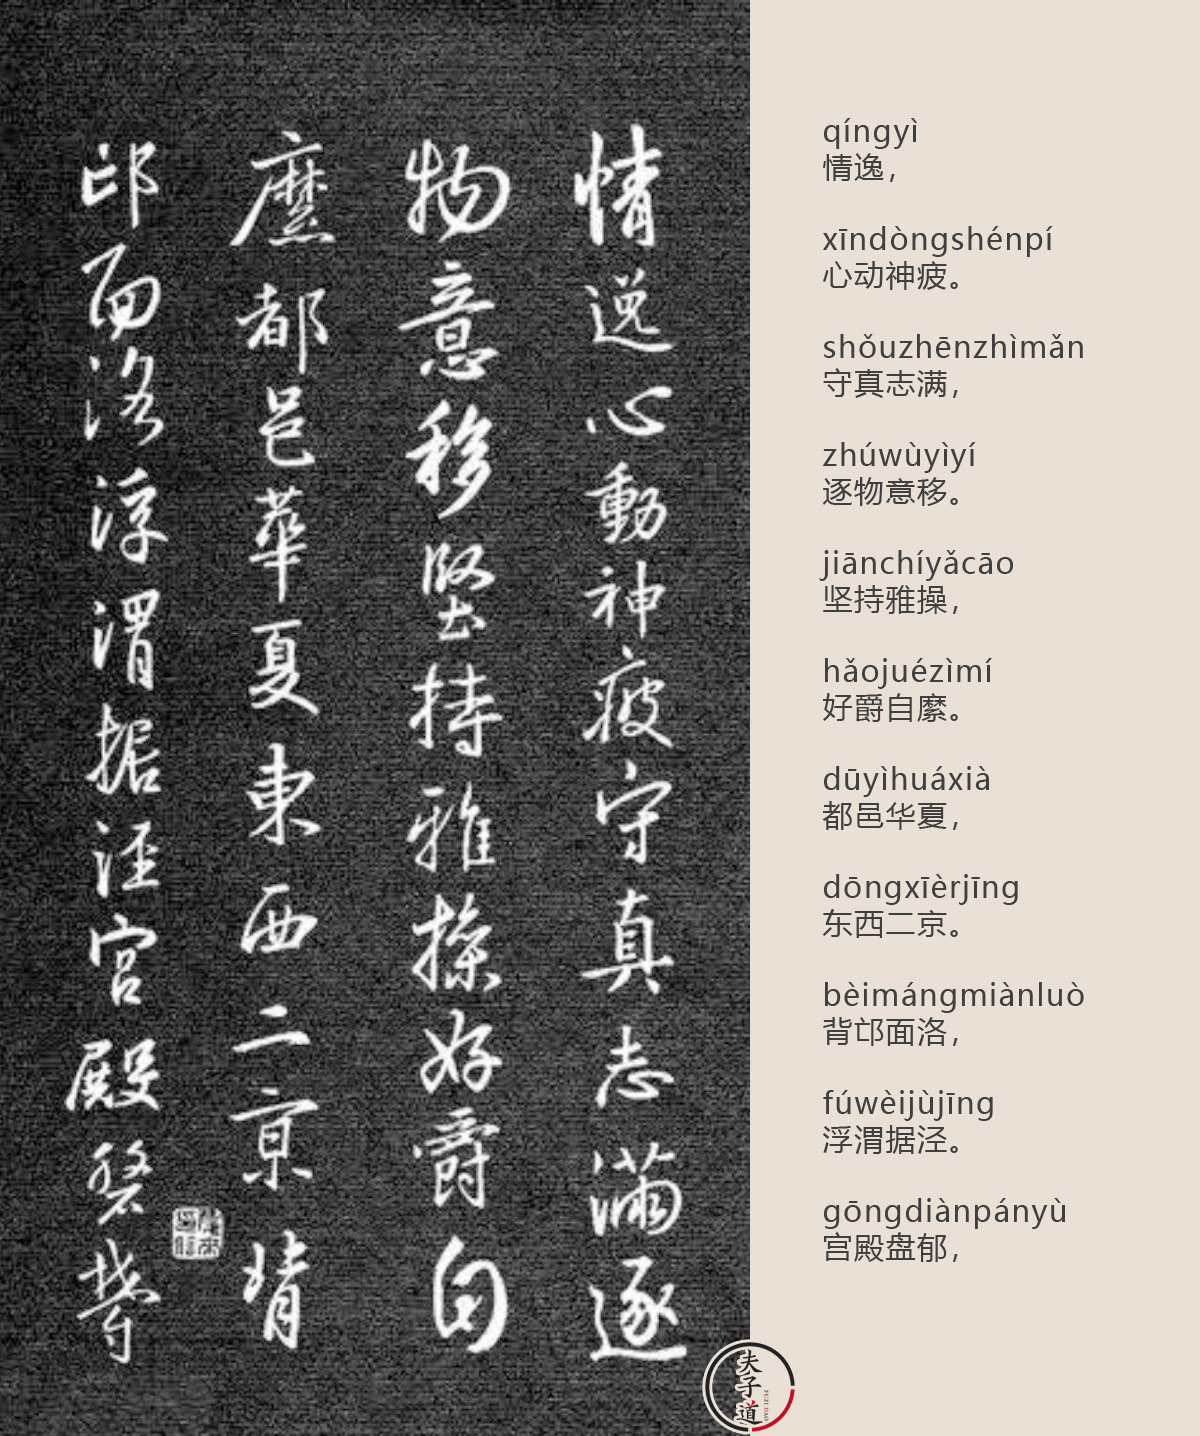 情逸心動神疲守真志滿逐
物意移堅持雅操好爵自
縻都邑華夏東西二京背
邙面洛浮渭据涇宫殿盤鬱
qíngyì
情逸，
xīndòngshénpí
心动神疲。
shǒuzhēnzhìmǎn
守真志满，
zhúwùyìyí
逐物意移。
jiānchíyǎcāo
坚持雅操，
hǎojuézìmí
好爵自縻。
dūyìhuáxià
都邑华夏，
dōngxīèrjīng
东西二京。
bèimángmiànluò
背邙面洛，
fúwèijùjīng
浮渭据泾。
gōngdiànpányù
宫殿盘郁，
夫子道
FUZI DAO